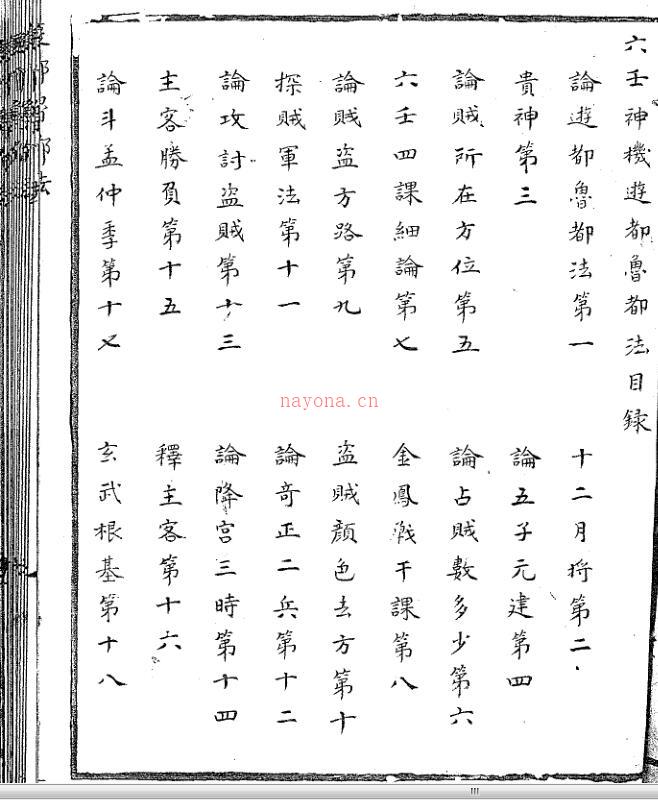 六壬神機遊都魯都法目録
論遊都魯都法第一
十二月将第二
貴神第三
論五子元建第四
論賊所在方位第五
論占賊數多少第六
六壬四課細論第七
金鳳戰干課第八
論賊盗方路第九
盗賊顏色去方第十
探賊軍法第十一
論奇正二兵第十二
論攻討盗賊第十三
論降宮三時第十四
主客勝負第十五
釋主客第十六
論斗孟仲季第十七
玄武根基第十八
nayona.cn